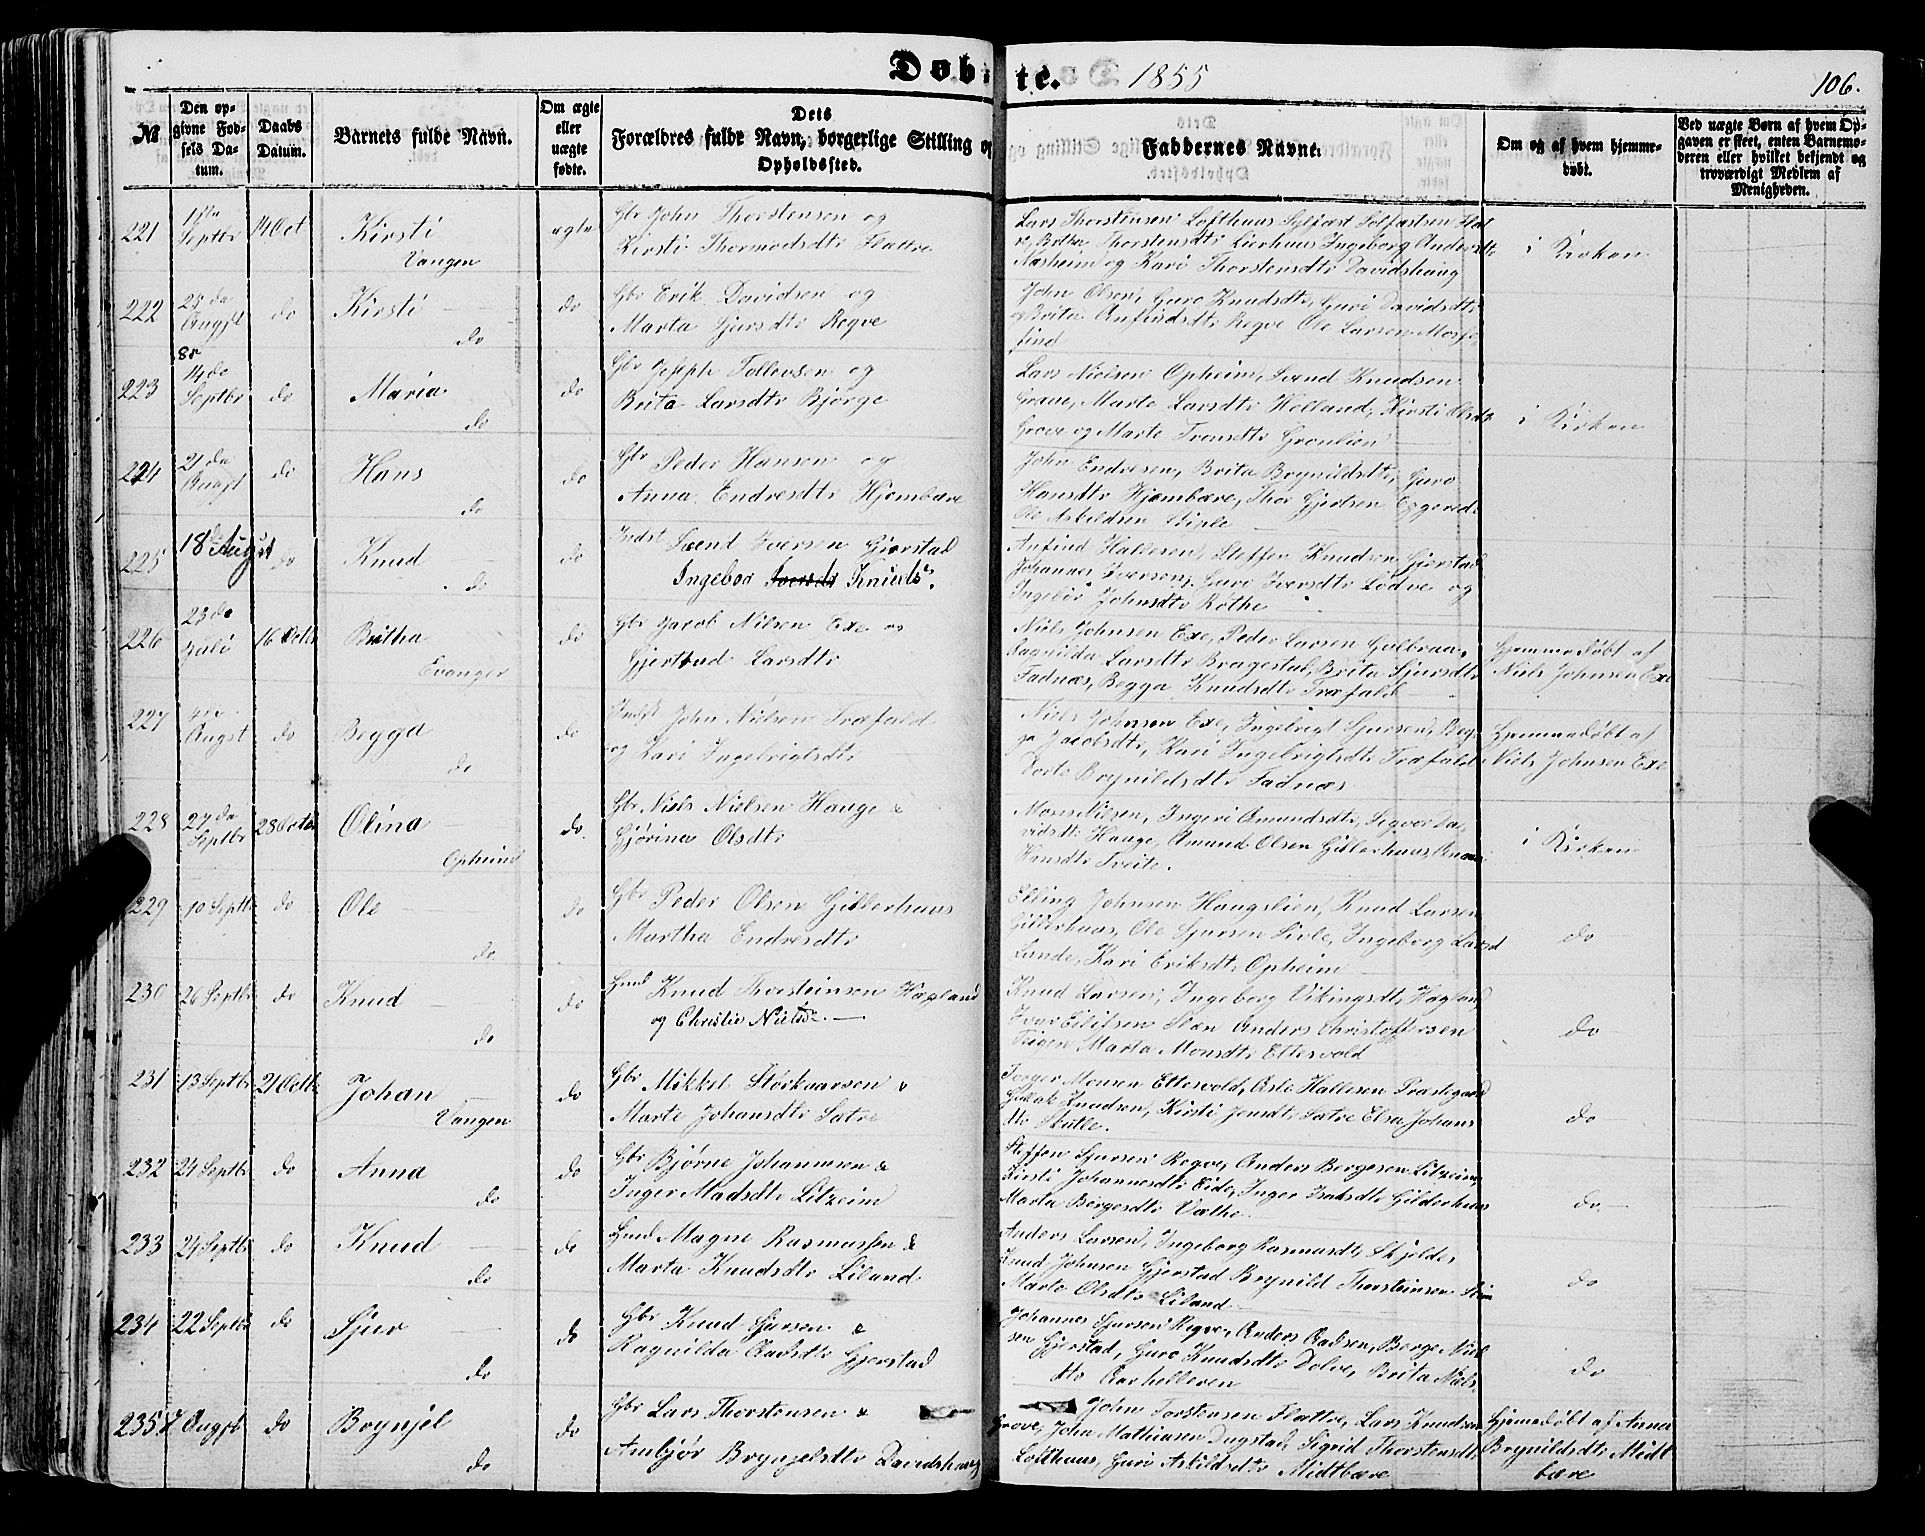 Døbte. 1855
106.
№
Den opgivne Fødsels Datum.
Daabs Datum.
Barnets fulde Navn.
Om ægte eller uægte fødte.
Dets Forældres fulde Navn, borgerlige Stilling og Opholdssted.
Faddernes Navne.
Om og af hvem hjemmedøbt.
Ved uægte Børn af hvem Opgaven er skeet, enten Barnemoderen eller hvilket bekjendt og troværdigt Medlem af Menigheden.
221 Septbr 14 Oct Kirsti ægte Gbr John Thorstensen og
Vangen Kirsti Thormodsdtr Flattre
Lars Thorstensen Lofthuus
Britha Thorstensdtr Lierhuus Ingeborg Andersdtr
og Kari Thorstensdtr Davidshaug
i Kirken
222 25 de Augst do Kirsti do Gbr Erik Davidsen og
do Marta Sjursdtr Rogve
John Olsen, Guro Knudsdtr, Guri Davidsdtr
Brita Anfindsdtr Rogve Ole Larsen
223 14 de Septbr do Maria do Gbr Joseph Tollevsen og
do Brita Larsdtr Bjørge
Lars Nielsen Opheim, Svend Knudsen
Grove, Marte Larsdtr Helland, Kirsti Olsdtr
Grove og Marte Ivarsdtr Grønlien
i Kirken
224 21 de Augst do Hans do Gbr Peder Hansen og
do Anna Endresdtr Hjembære
John Endresen, Brita Brynildsdtr, Guro
Hansdtr Hjembære, Thor Gjertsen Eggered
Ole Askildsen
225 18 de Augst do Knud do Indst Svend Iversen Gjerstad
do Ingebor Knuds.
Anfind Hallesen, Steffen Knudsen Gjerstad
Johannes Iversen, Guro Iversdtr Lødve og
Ingebor Johnsdtr Røthe
226 23 de Juli 16 Octb Britha do Gbr Jacob Nilsen Exe og
Evanger Gjertrud Larsdtr
Niels Johnsen Exe, Peder Larsen
Ragnilda Larsdtr Bragestad, Brita Sjursdtr
Fadnæs, Begga Knudsdtr Træfald
Hjemmedøbt af
Niels Johnsen Exe
227 Augst do Begga do Indst John Nielsen Træfald
do og Kari Ingebrigtsdtr
Niels Johnsen Exe, Ingebrigt Sjursen, Beg-
ga Jacobsdtr, Kari Ingebrigtsdtr Træfald
Dorte Brynildsdtr Fadnæs
Hjemmedøbt af
Niels Johnsen Exe
228 27 de Septbr 28 Octb Olina do. Gbr Niels Nielsen Hauge &
Opheim Gjørina Olsdtr
Mons Nilsen, Ingeri Amundsdtr, Sygver Da-
vidsdtr Hauge, Amund Olsen Gillerhuus, Anna
Hansdtr Tveite.
i Kirken
229 10 Septb do Ole do Gbr Peder Olsen Gillerhuus
do Martha Endresdtr
Elling Johnsen Haugslien, Knud Larsen
Gillerhuus, Ole Sjursen Sivle, Ingeborg Larsd
Lunde, Kari Eriksdtr Opheim
do
230 26 Septbr do Knud do Huusm Knud Thorsteinsen Hægland
do og Christie Nielsdtr
Knud Larsen, Ingeborg Vikingsdtr Hægland,
Ivar Eilifsen Steen Anders Christoffersen
Marta Monsdtr Ettesvold
do
231 13 Septbr 21 Octb Johan do Gbr Mikkel Størkaarsen &
Vangen Marte Johansdtr Sætre
Torger Monsen Ettesvold, Asle Hallesen Præstegaard
Knudsen, Kirsti Jensdtr Sætre Elsa Johans
dtr Skutle.
do
232 24 Septbr do Anna do Gbr Bjørne Johannesen &
do Inger Madsdtr Litzeim
Steffen Sjursen Rogve, Anders Bergesen Litzeim,
Kirsti Johannesdtr Eide, Inger Isaksdtr Gilderhuus
Marta Bergesdtr Væthe
do
233 24 Septbr do Knud do Huusm Magne Rasmussen &
do Marta Knudsdtr Liland
Anders Larsen, Ingeborg Rasmusdtr Skjelde,
Knud Johnsen Gjerstad Brynild Thorsteinsen
Marte Olsdtr Liland
do
234 22 Septbr do Sjur do Gbr Knud Sjursen &
do Ragnilda Aadsdtr Gjerstad
Johannes Sjursen Rogve, Anders Aadsen, Berge Niel-
sen Gjerstad, Guro Knudsdtr Dolve, Brita Niels-
dtr Aarhelleren
do
235 7 Augst do Brynjel do Gbr Lars Thorstensen &
do Ambjør Bryngelsdtr Davidshaug
John Torstensen Flattre, Lars Knudsen
Grove, John Mathiasen Dugstad, Sigrid Thorstensdtr
Lofthuus, Guri Askildsdtr Midtbære
Hjemedøbt af Anna
Brynildsdtr Midt
bære